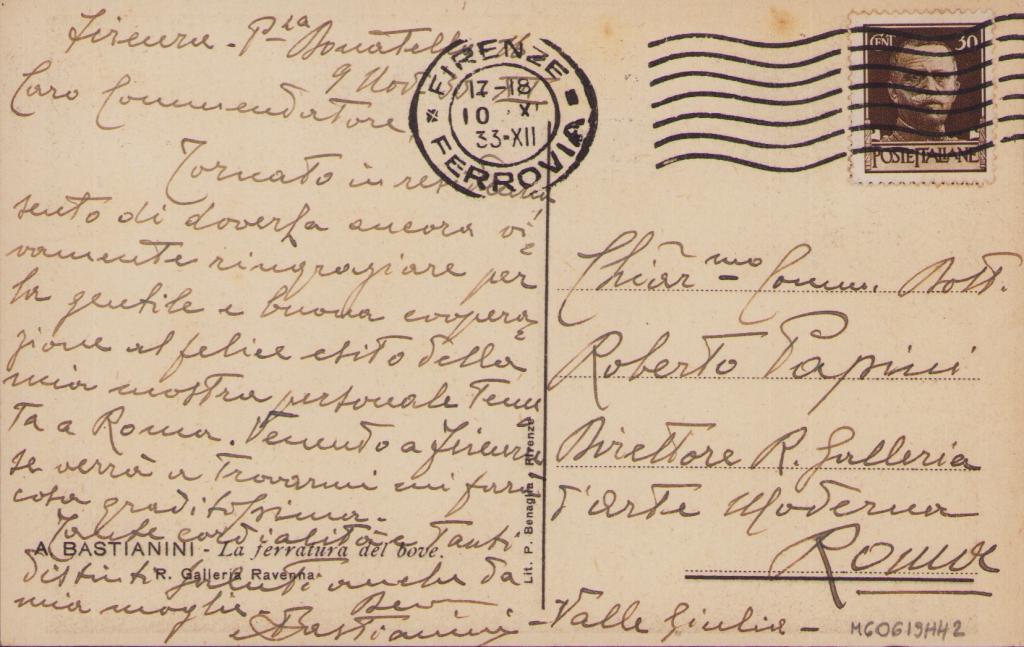 Firenze - P.za Donatello
9 Nov
Caro Commendatore
Tornato in
sento di doverla ancora vi=
vamente ringraziare per
la gentile e buona coopera=
zione al felice esito della
mia mostra personale tenu
ta a Roma. Venendo a Firenze
se verrà a trovarmi mi farà
cosa graditissima.
Tante cordialità e tanti
distinti saluti anche da
mia moglie -
Bastianini
A. BASTIANINI - La ferratura del bove.
R. Galleria Ravenna
Lit. P. Benaglia - Firenze
FIRENZE
17-18
10 XI
33-XII
FERROVIA
CENT 30
POSTE ITALIANE
Chiar.mo Comm. Dott.
Roberto Papini
Direttore R. Galleria
d'arte Moderna
Roma
- Valle Giulia -
MG0619H42